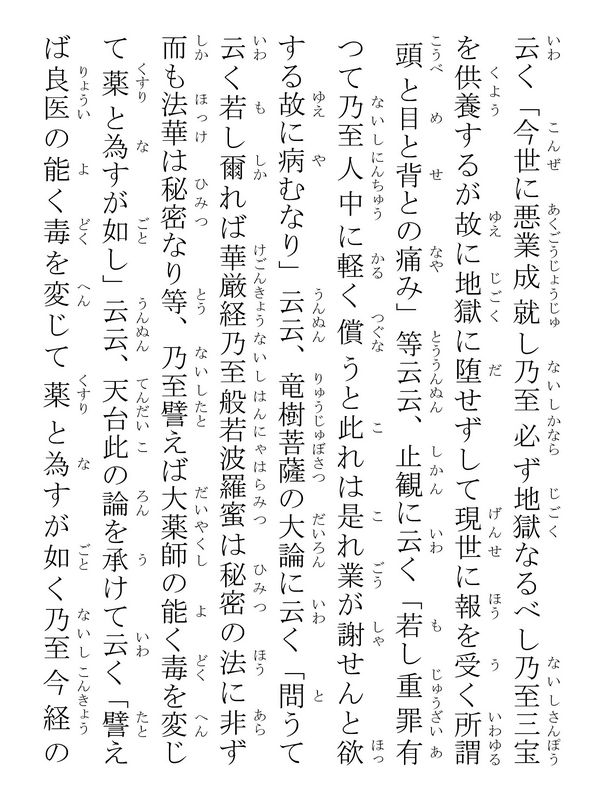 云く「今世に悪業成就し乃至必ず地獄なるべし乃至三宝
を供養するが故に地獄に堕せずして現世に報を受く所謂
頭と目と背との痛み」等云云、止観に云く「若し重罪有
つて乃至人中に軽く償うと此れは是れ業が謝せんと欲
する故に病むなり」云云、竜樹菩薩の大論に云く「問うて
云く若し爾れば華厳経乃至般若波羅蜜は秘密の法に非ず
而も法華は秘密なり等、乃至譬えば大薬師の能く毒を変じ
て薬と為すが如し」云云、天台此の論を承けて云く「譬え
ば良医の能く毒を変じて薬と為すが如く乃至今経の